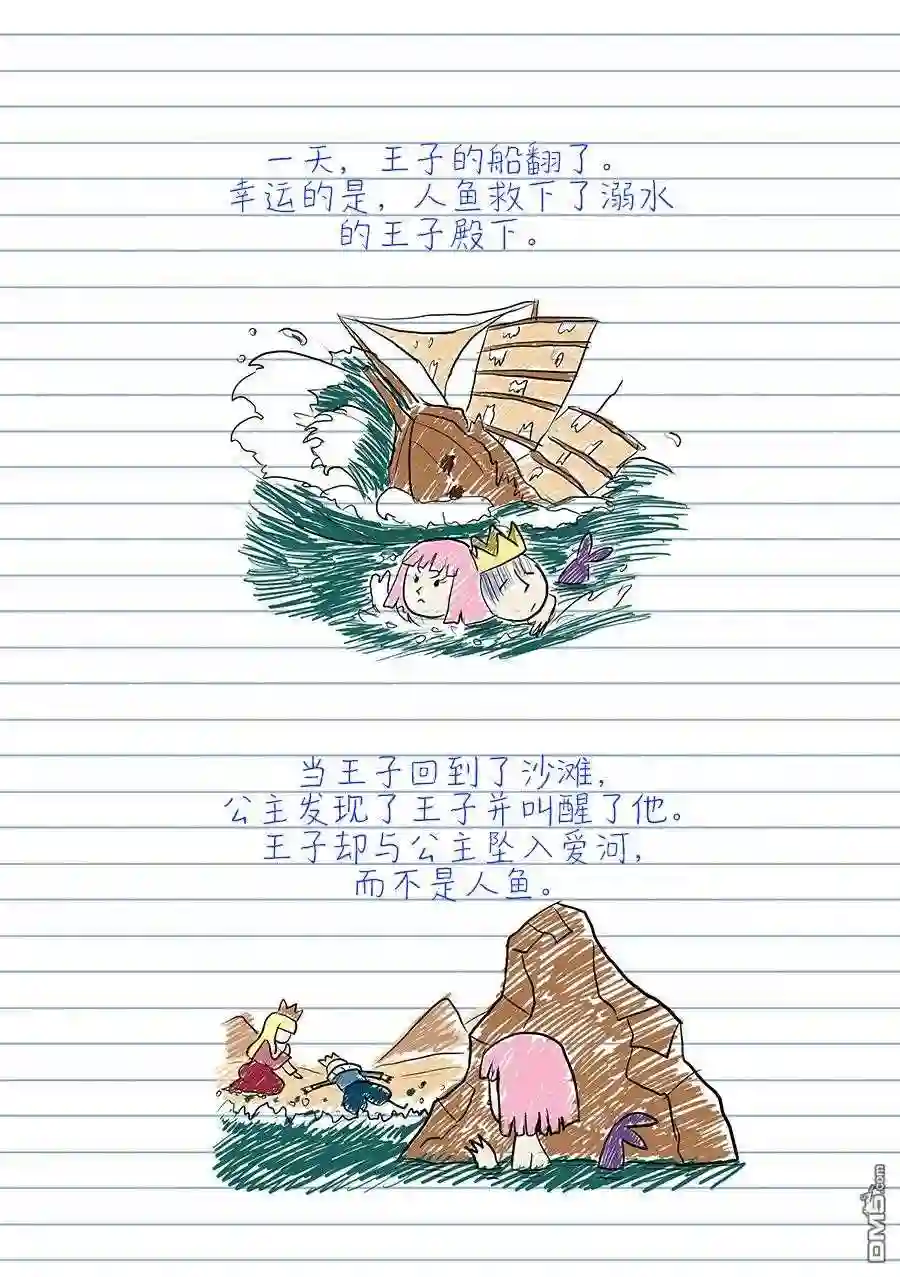 一天，王子的船翻了。
幸运的是，人鱼救下了溺水
的王子殿下。
当王子回到了沙滩，
公主发现了王子并叫醒了他。
王子却与公主坠入爱河，
而不是人鱼。
DM5.com